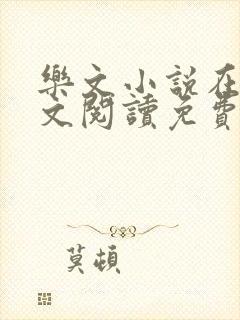 樂文小說在
文閱讀免費
莫頓